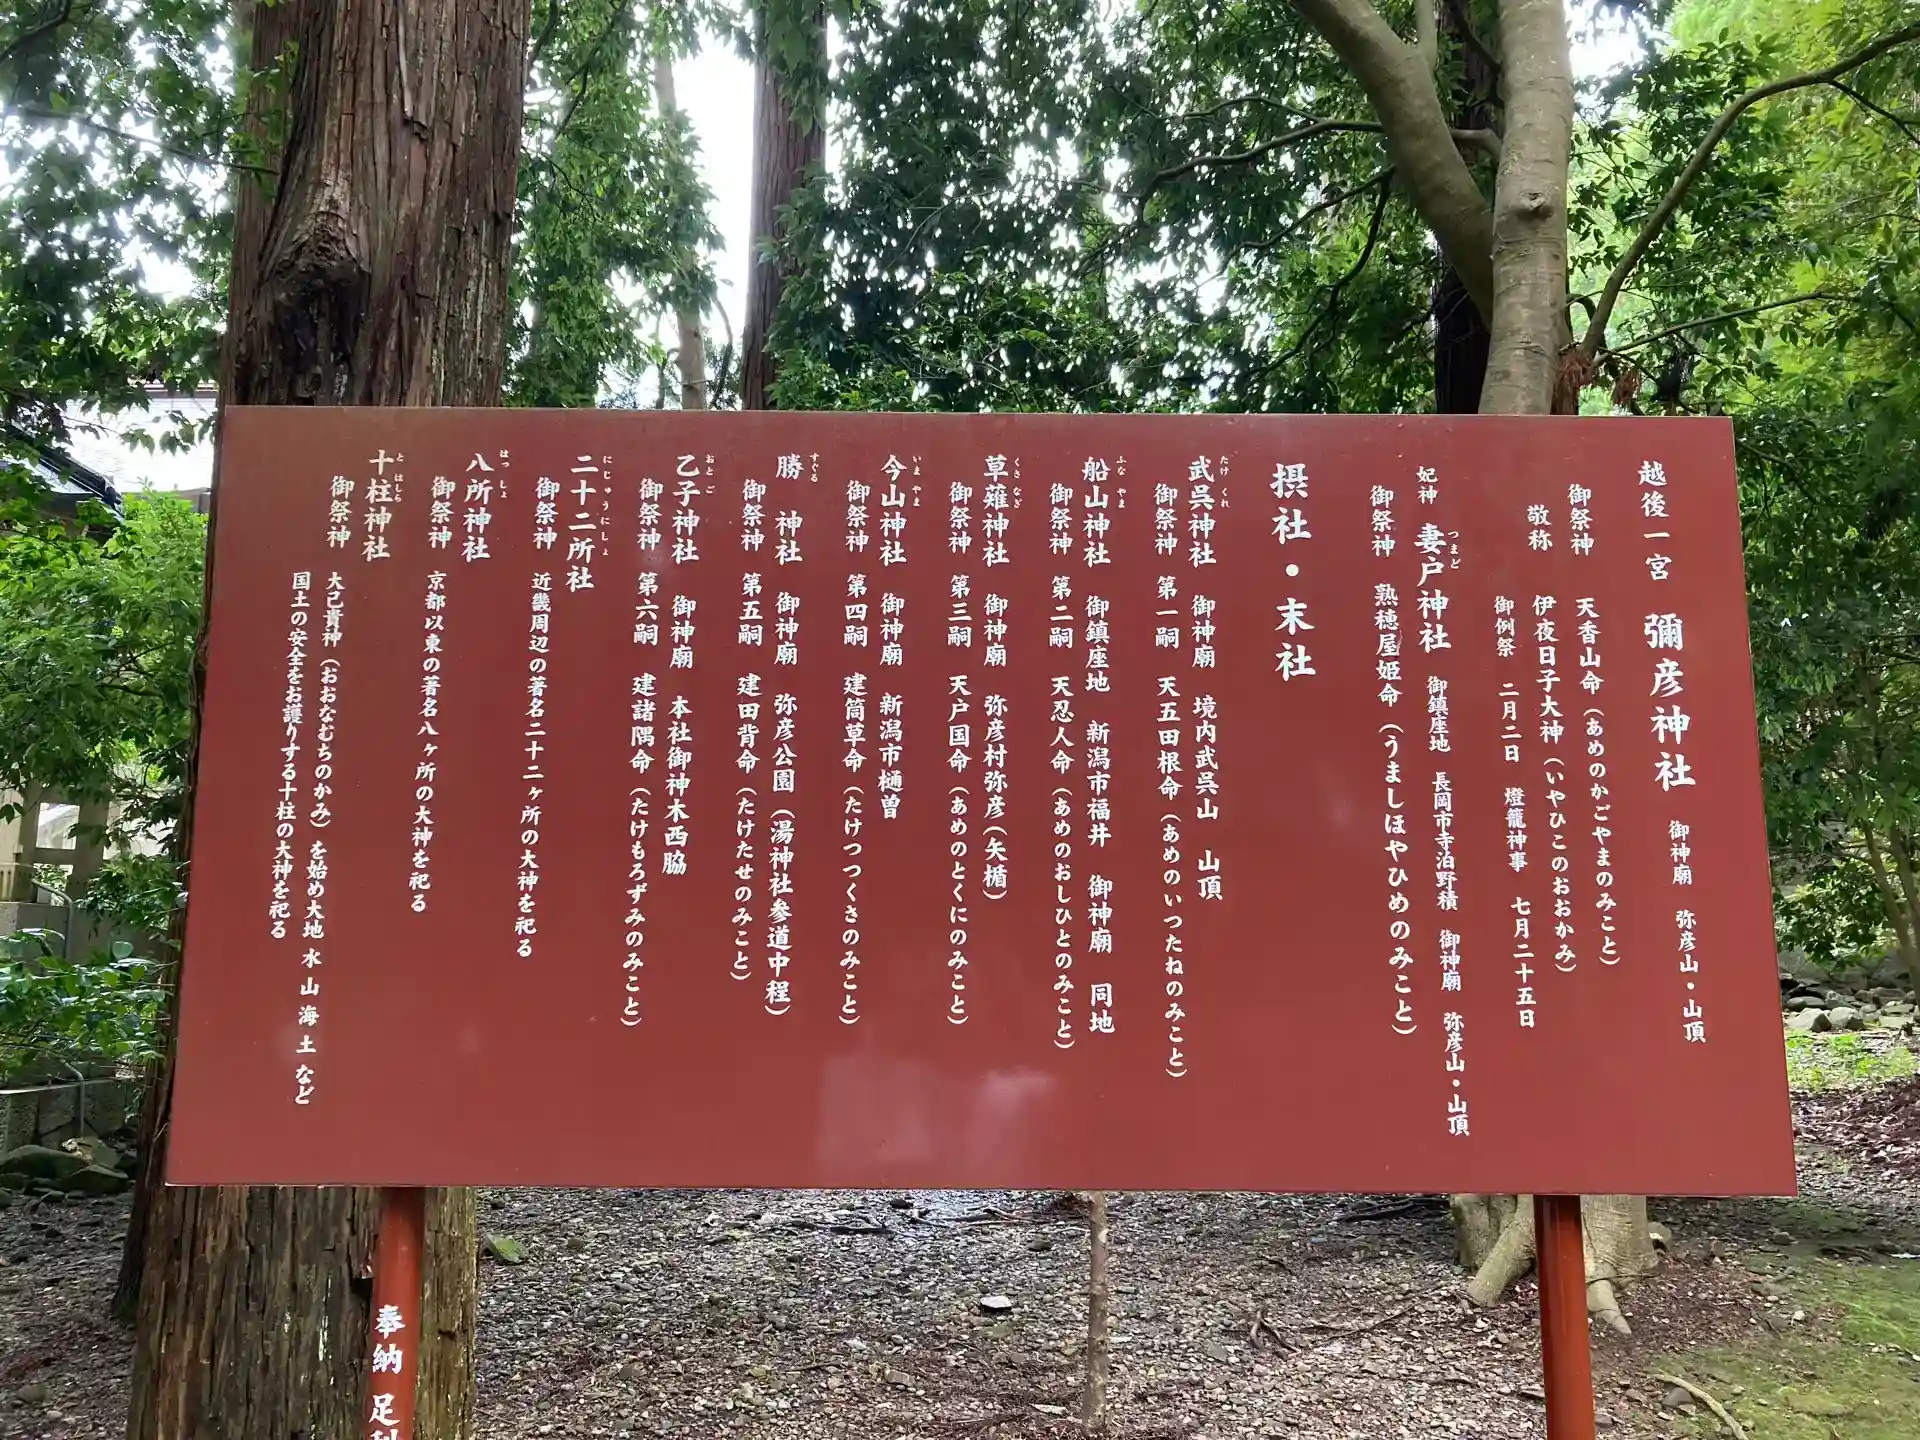 越後一宮 彌彦神社 御神廟 弥彦山・山頂
御祭神 天香山命（あめのかごやまのみこと）
敬称 伊夜日子大神（いやひこのおおかみ）
御例祭 二月二日 燈籠神事 七月二十五日
妃神 妻戸神社 御鎮座地 長岡市寺泊野積 御神廟 弥彦山・山頂
つまど
御祭神 熟穂屋姫命（うましほやひめのみこと）
摂社・末社
武呉神社 御神廟 境内武呉山 山頂
たけ くれ
御祭神 第一嗣 天五田根命（あめのいつたねのみこと）
船山神社 御鎮座地 新潟市福井 御神廟 同地
ふな やま
御祭神 第二嗣 天忍人命（あめのおしひとのみこと）
草薙神社 御神廟 弥彦村弥彦（矢楯）
くさ なぎ
御祭神 第三嗣 天戸国命（あめのとくにのみこと）
今山神社 御神廟 新潟市樋曽
いま やま
御祭神 第四嗣 建筒草命（たけつつくさのみこと）
勝 神社 御神廟 弥彦公園（湯神社参道中程）
すぐる
御祭神 第五嗣 建田背命（たけたせのみこと）
乙子神社 御神廟 本社御神木西脇
おと ご
御祭神 第六嗣 建諸隅命（たけもろずみのみこと）
二十二所社
にじゅうにしょ
御祭神 近畿周辺の著名二十二ヶ所の大神を祀る
八所神社
はっしょ
御祭神 京都以東の著名八ヶ所の大神を祀る
十柱神社
と はしら
御祭神 大己貴神（おおなむちのかみ）を始め大地 水 山 海 土 など
国土の安全をお護りする十柱の大神を祀る
奉納 足利